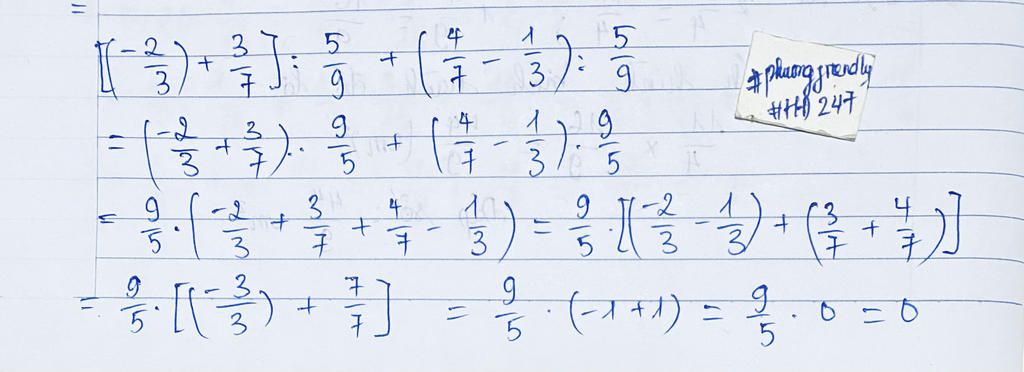 =
[(-2/3) + 3/7] : 5/9 + (4/7 - 1/3) : 5/9
= (-2/3 + 3/7) . 9/5 + (4/7 - 1/3) : 9/5
= 9/5 . (-2/3 + 3/7 + 4/7 - 1/3) = 9/5 . [(-2/3 - 1/3) + (3/7 + 4/7)]
= 9/5 . [(-3/3) + 7/7] = 9/5 . (-1 + 1) = 9/5 . 0 = 0
#phuongfriendly
#HĐ 247